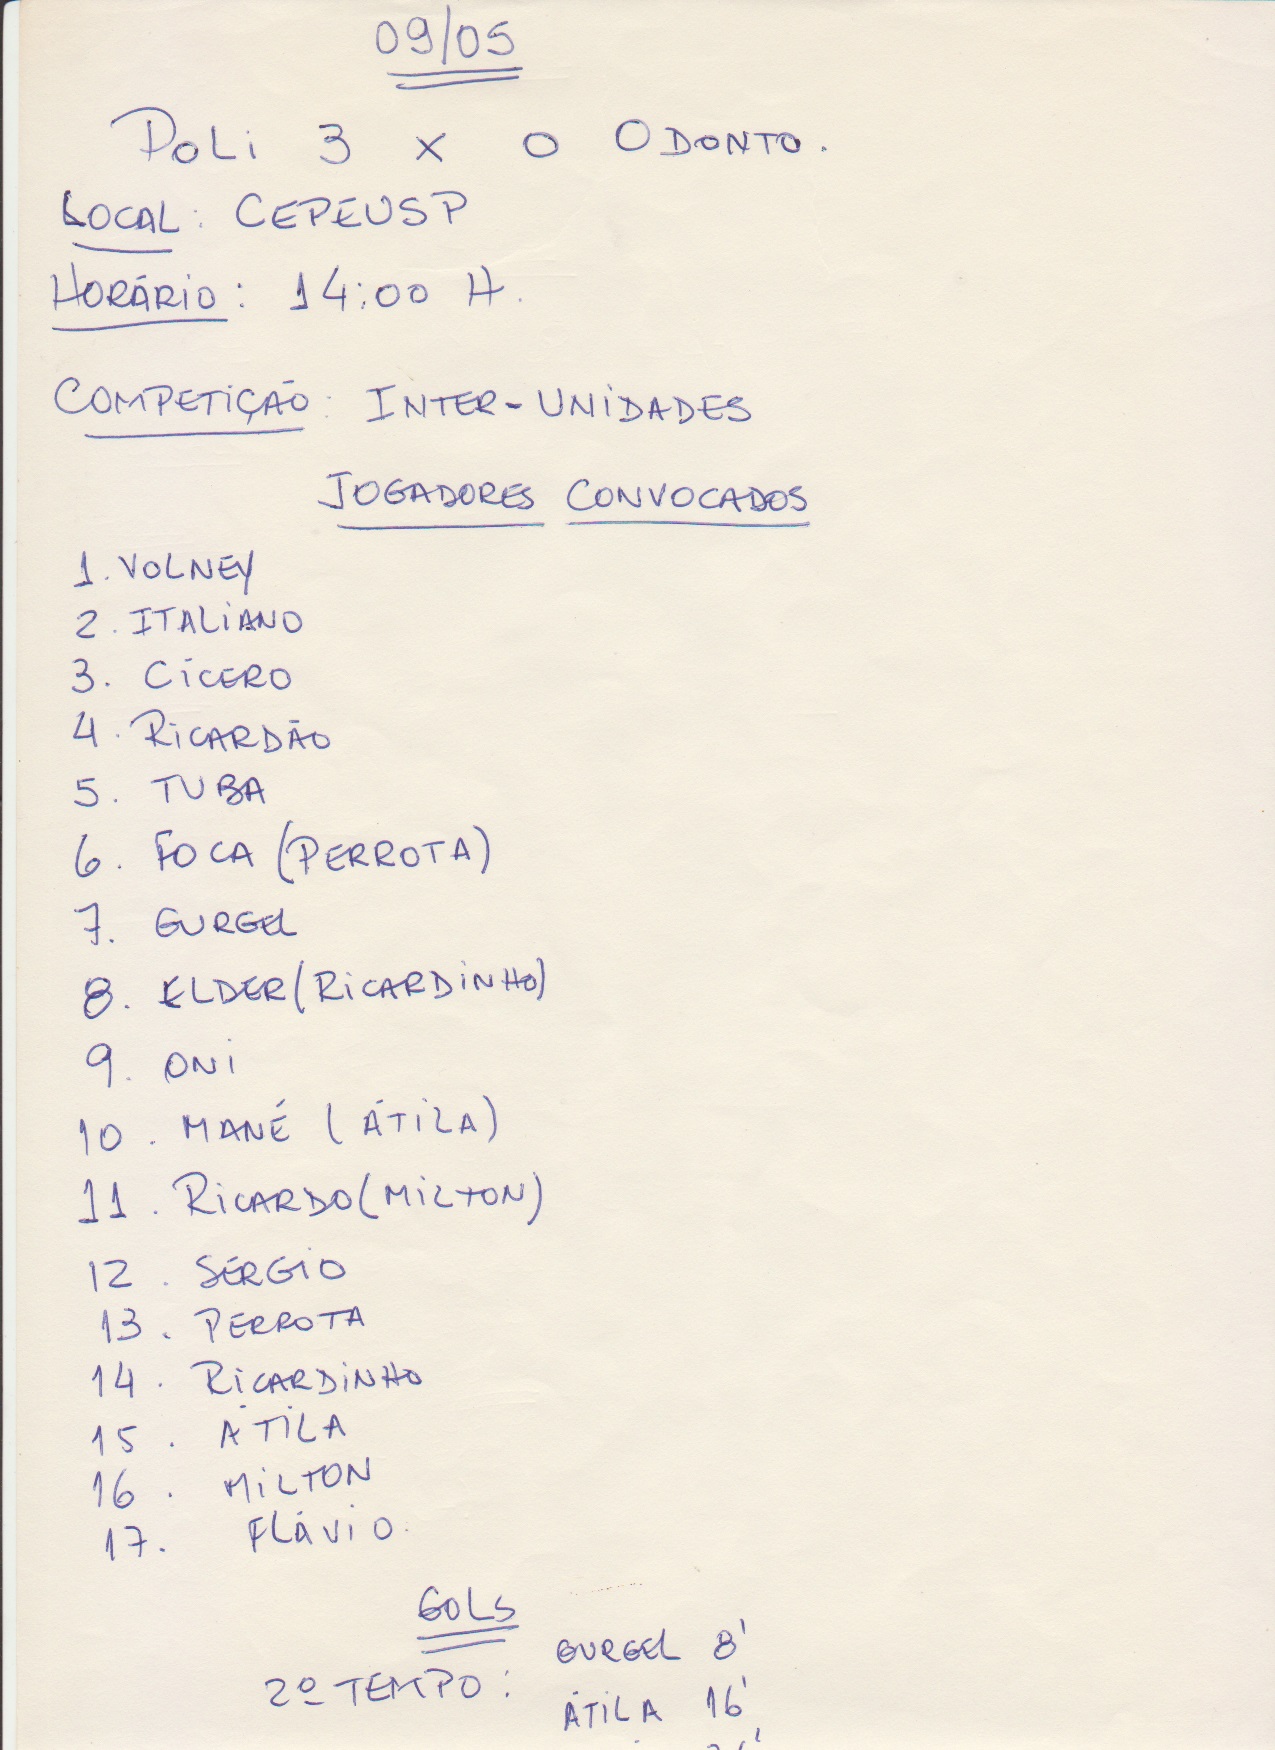 09/05
POLI 3 X 0 ODONTO.
LOCAL: CEPEUSP
HORÁRIO: 14:00 H.
COMPETIÇÃO: INTER-UNIDADES
JOGADORES CONVOCADOS
1. VOLNEY
2. ITALIANO
3. CÍCERO
4. RICARDÃO
5. TUBA
6. FOCA (PERROTA)
7. GURGEL
8. ELDER (RICARDINHO)
9. ONI
10. MANÉ (ÁTILA)
11. RICARDO (MILTON)
12. SÉRGIO
13. PERROTA
14. RICARDINHO
15. ÁTILA
16. MILTON
17. FLÁVIO.
GOLS
2º TEMPO: GURGEL 8'
ÁTILA 16'